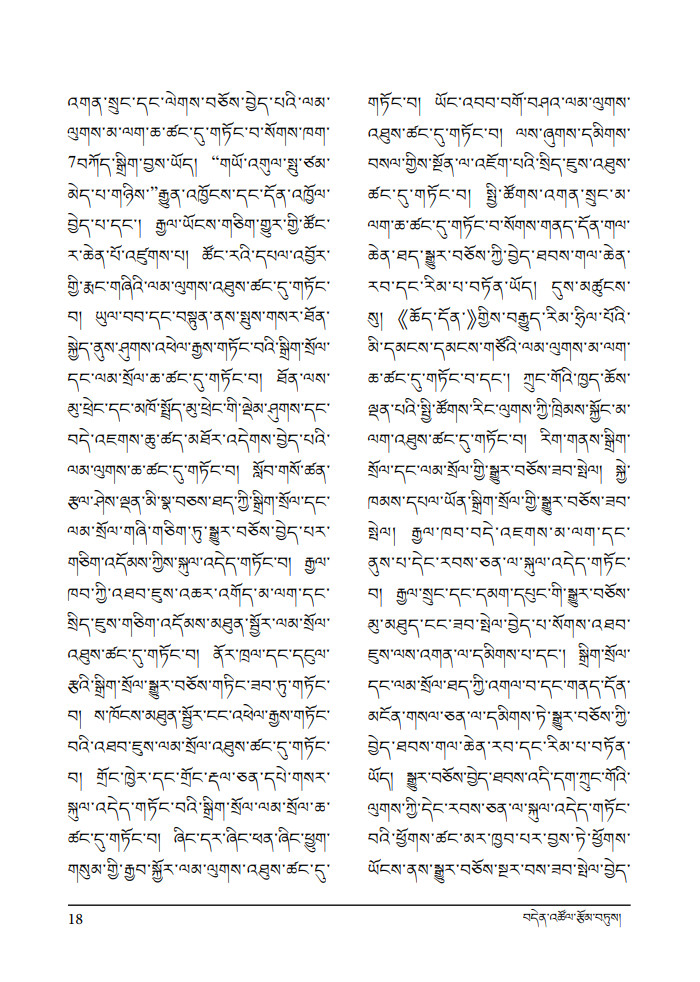 འགན་སྲུང་དང་ལེགས་བཅོས་བྱེད་པའི་ལམ་
ལུགས་མ་ལག་ཆ་ཚང་དུ་གཏོང་བ་སོགས་ཁག་
7བཀོད་སྒྲིག་བྱས་ཡོད། “གཡོ་འགུལ་སྤུ་ཙམ་
མེད་པ་གཉིས་”རྒྱུན་འཁྱོངས་དང་དོན་འཁྱོལ་
བྱེད་པ་དང་། རྒྱལ་ཡོངས་གཅིག་གྱུར་གྱི་ཚོང་
ར་ཆེན་པོ་འཛུགས་པ། ཚོང་རའི་དཔལ་འབྱོར་
གྱི་རྨང་གཞིའི་ལམ་ལུགས་འཐུས་ཚང་དུ་གཏོང་
བ། ཡུལ་བབ་དང་བསྟུན་ནས་སྤུས་གསར་ཐོན་
སྐྱེད་ནུས་ཤུགས་འཕེལ་རྒྱས་གཏོང་བའི་སྒྲིག་སྲོལ་
དང་ལམ་སྲོལ་ཆ་ཚང་དུ་གཏོང་བ། ཐོན་ལས་
མུ་ཕྲེང་དང་མཁོ་སྤྲོད་མུ་ཕྲེང་གི་ལྡེམ་ཤུགས་དང་
བདེ་འཇགས་ཆུ་ཚད་མཐོར་འདེགས་བྱེད་པའི་
ལམ་ལུགས་ཆ་ཚང་དུ་གཏོང་བ། སློབ་གསོ་ཚན་
རྩལ་ཤེས་ལྡན་མི་སྣ་བཅས་ཐད་ཀྱི་སྒྲིག་སྲོལ་དང་
ལམ་སྲོལ་གཞི་གཅིག་ཏུ་སྒྱུར་བཅོས་བྱེད་པར་
གཅིག་འདོམས་ཀྱིས་སྐུལ་འདེད་གཏོང་བ། རྒྱལ་
ཁབ་ཀྱི་འཐབ་ཇུས་འཆར་འགོད་མ་ལག་དང་
སྲིད་ཇུས་གཅིག་འདོམས་མཐུན་སྦྱོར་ལམ་སྲོལ་
འཐུས་ཚང་དུ་གཏོང་བ། ནོར་ཁྲལ་དང་དངུལ་
རྩའི་སྒྲིག་སྲོལ་སྒྱུར་བཅོས་གཏིང་ཟབ་ཏུ་གཏོང་
བ། ས་ཁོངས་མཐུན་སྦྱོར་ངང་འཕེལ་རྒྱས་གཏོང་
བའི་འཐབ་ཇུས་ལམ་སྲོལ་འཐུས་ཚང་དུ་གཏོང་
བ། གྲོང་ཁྱེར་དང་གྲོང་རྡལ་ཅན་དཔེ་གསར་
སྐུལ་འདེད་གཏོང་བའི་སྒྲིག་སྲོལ་ལམ་སྲོལ་ཆ་
ཚང་དུ་གཏོང་བ། ཞིང་དར་ཞིང་ཕན་ཞིང་ཕྱུག་
གསུམ་གྱི་རྒྱབ་སྐྱོར་ལམ་ལུགས་འཐུས་ཚང་དུ་
གཏོང་བ། ཡོང་འབབ་བགོ་བཤའ་ལམ་ལུགས་
འཐུས་ཚང་དུ་གཏོང་བ། ལས་ཞུགས་དམིགས་
བསལ་གྱིས་སྔོན་ལ་འཇོག་པའི་སྲིད་ཇུས་འཐུས་
ཚང་དུ་གཏོང་བ། སྤྱི་ཚོགས་འགན་སྲུང་མ་
ལག་ཆ་ཚང་དུ་གཏོང་བ་སོགས་གནད་དོན་གལ་
ཆེན་ཐད་སྒྱུར་བཅོས་ཀྱི་བྱེད་ཐབས་གལ་ཆེན་
རབ་དང་རིམ་པ་བཏོན་ཡོད། དུས་མཚུངས་
སུ། 《ཆོད་དོན་》གྱིས་བརྒྱུད་རིམ་ཧྲིལ་པོའི་
མི་དམངས་དམངས་གཙོའི་ལམ་ལུགས་མ་ལག་
ཆ་ཚང་དུ་གཏོང་བ་དང་། ཀྲུང་གོའི་ཁྱད་ཆོས་
ལྡན་པའི་སྤྱི་ཚོགས་རིང་ལུགས་ཀྱི་ཁྲིམས་སྐྱོང་མ་
ལག་འཐུས་ཚང་དུ་གཏོང་བ། རིག་གནས་སྒྲིག་
སྲོལ་དང་ལམ་སྲོལ་གྱི་སྒྱུར་བཅོས་ཟབ་སྤེལ། སྐྱེ་
ཁམས་དཔལ་ཡོན་སྒྲིག་སྲོལ་གྱི་སྒྱུར་བཅོས་ཟབ་
སྤེལ། རྒྱལ་ཁབ་བདེ་འཇགས་མ་ལག་དང་
ནུས་པ་དེང་རབས་ཅན་ལ་སྐུལ་འདེད་གཏོང་
བ། རྒྱལ་སྲུང་དང་དམག་དཔུང་གི་སྒྱུར་བཅོས་
མུ་མཐུད་ངང་ཟབ་སྤེལ་བྱེད་པ་སོགས་འཐབ་
ཇུས་ལས་འགན་ལ་དམིགས་པ་དང་། སྒྲིག་སྲོལ་
དང་ལམ་སྲོལ་ཐད་ཀྱི་འགལ་བ་དང་གནད་དོན་
མངོན་གསལ་ཅན་ལ་དམིགས་ཏེ་སྒྱུར་བཅོས་ཀྱི་
བྱེད་ཐབས་གལ་ཆེན་རབ་དང་རིམ་པ་བཏོན་
ཡོད། སྒྱུར་བཅོས་བྱེད་ཐབས་འདི་དག་ཀྲུང་གོའི་
ལུགས་ཀྱི་དེང་རབས་ཅན་ལ་སྐུལ་འདེད་གཏོང་
བའི་ཕྱོགས་ཚང་མར་ཁྱབ་པར་བྱས་ཏེ་ཕྱོགས་
ཡོངས་ནས་སྒྱུར་བཅོས་སྔར་བས་ཟབ་སྤེལ་བྱེད་
18
བདེན་འཚོལ་རྩོམ་བཏུས།